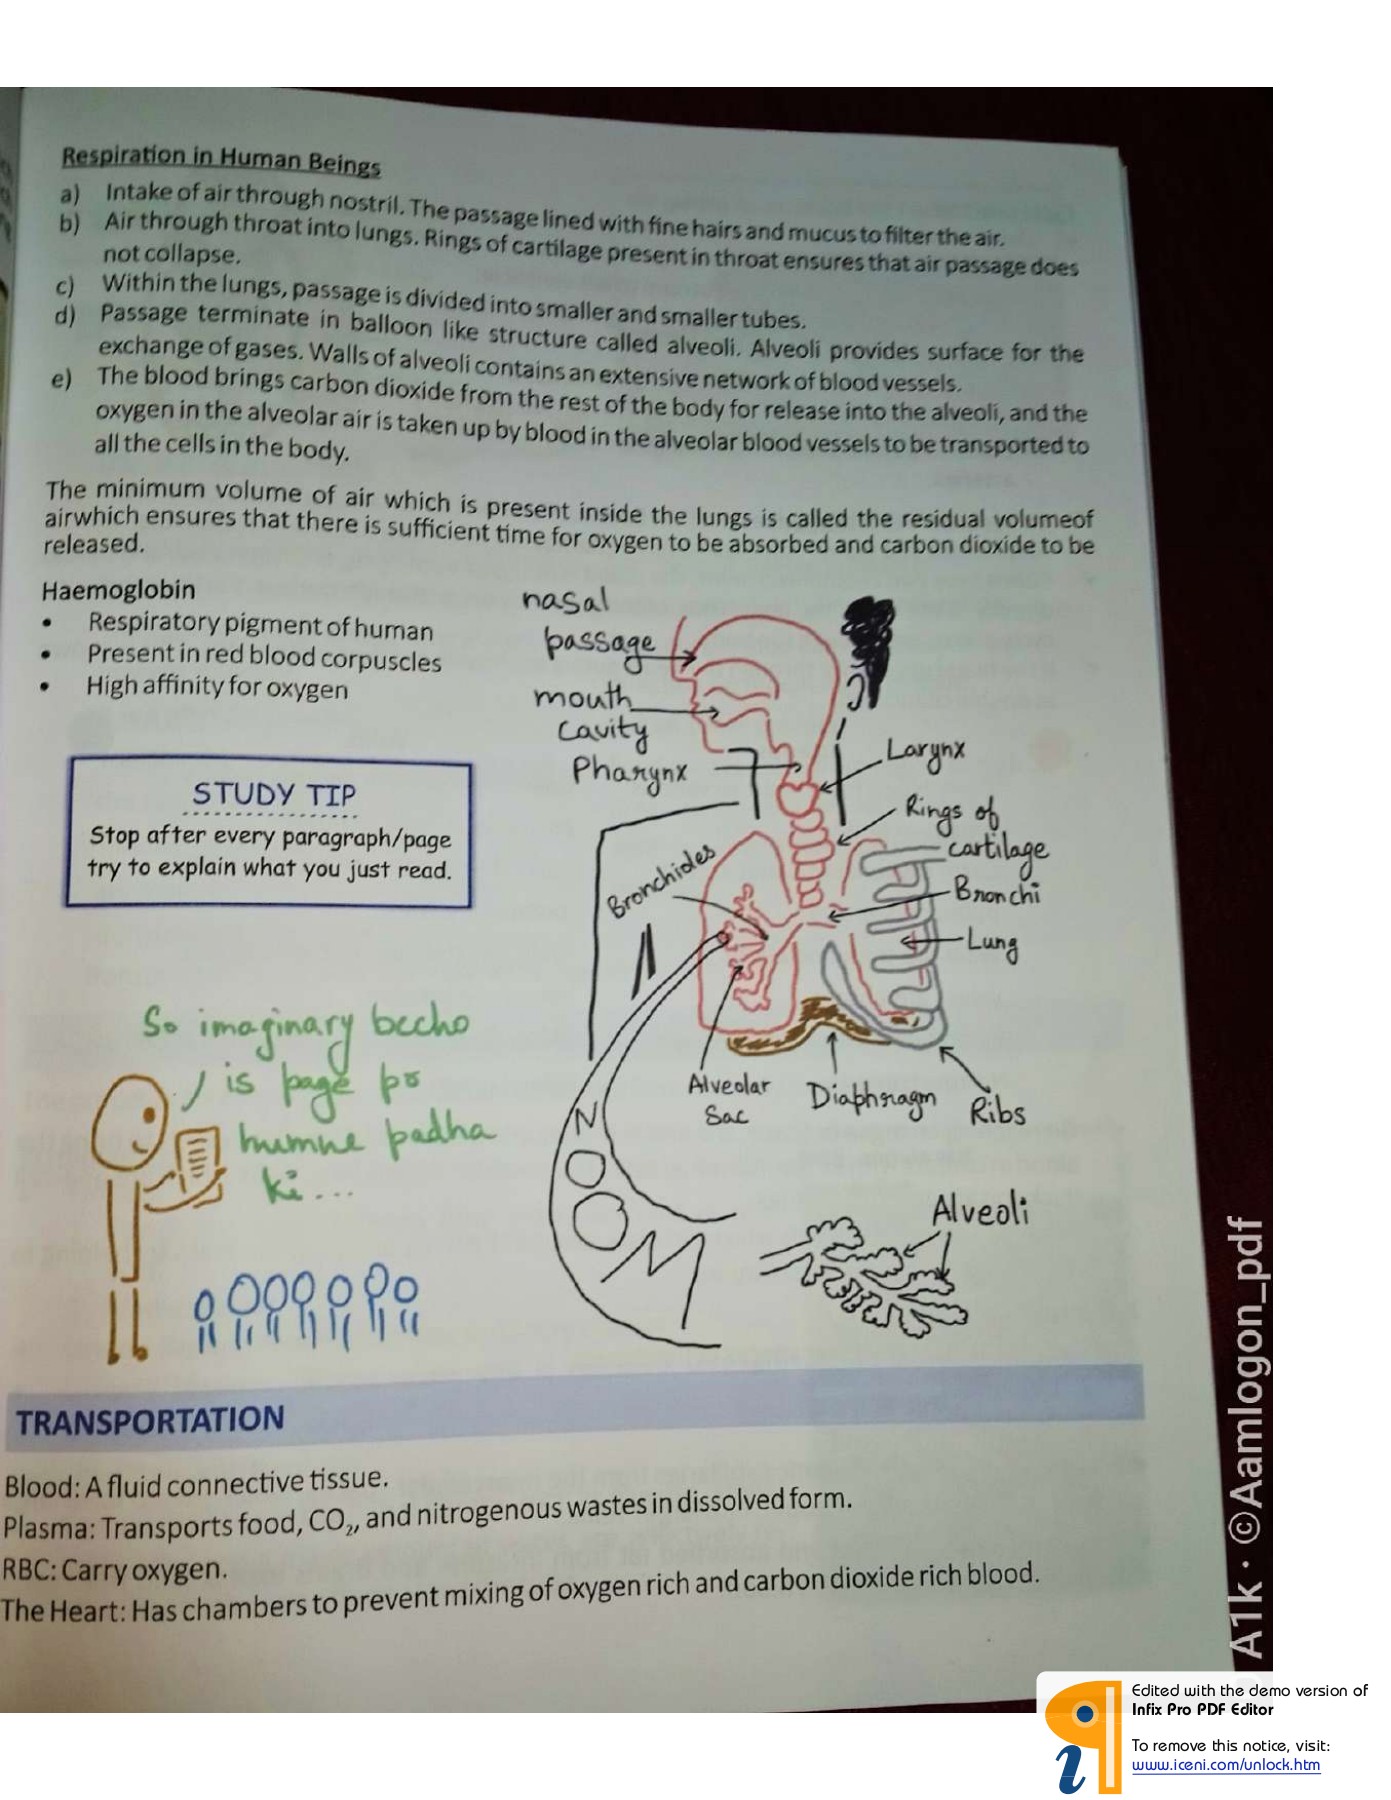 Respiration in Human Beings
a) Intake of air through nostril. The passage lined with fine hairs and mucus to filter the air.
b) Air through throat into lungs. Rings of cartilage present in throat ensures that air passage does
not collapse.
c) Within the lungs, passage is divided into smaller and smaller tubes.
d) Passage terminate in balloon like structure called alveoli. Alveoli provides surface for the
exchange of gases. Walls of alveoli contains an extensive network of blood vessels.
e) The blood brings carbon dioxide from the rest of the body for release into the alveoli, and the
oxygen in the alveolar air is taken up by blood in the alveolar blood vessels to be transported to
all the cells in the body.
The minimum volume of air which is present inside the lungs is called the residual volumeof
airwhich ensures that there is sufficient time for oxygen to be absorbed and carbon dioxide to be
released.
Haemoglobin
• Respiratory pigment of human
• Present in red blood corpuscles
• High affinity for oxygen
STUDY TIP
Stop after every paragraph/page
try to explain what you just read.
nasal
passage
mouth
cavity
Pharynx
Larynx
Rings of
cartilage
Bronchi
Lung
Bronchides
Alveolar
Sac
Diaphragm
Ribs
ZOOM
Alveoli
So imaginary becho
is page pr
humne padha
ki...
TRANSPORTATION
Blood: A fluid connective tissue.
Plasma: Transports food, CO₂, and nitrogenous wastes in dissolved form.
RBC: Carry oxygen.
The Heart: Has chambers to prevent mixing of oxygen rich and carbon dioxide rich blood.
A1k · ©Aamlogon_pdf
Edited with the demo version of
Infix Pro PDF Editor
To remove this notice, visit:
www.iceni.com/unlock.htm